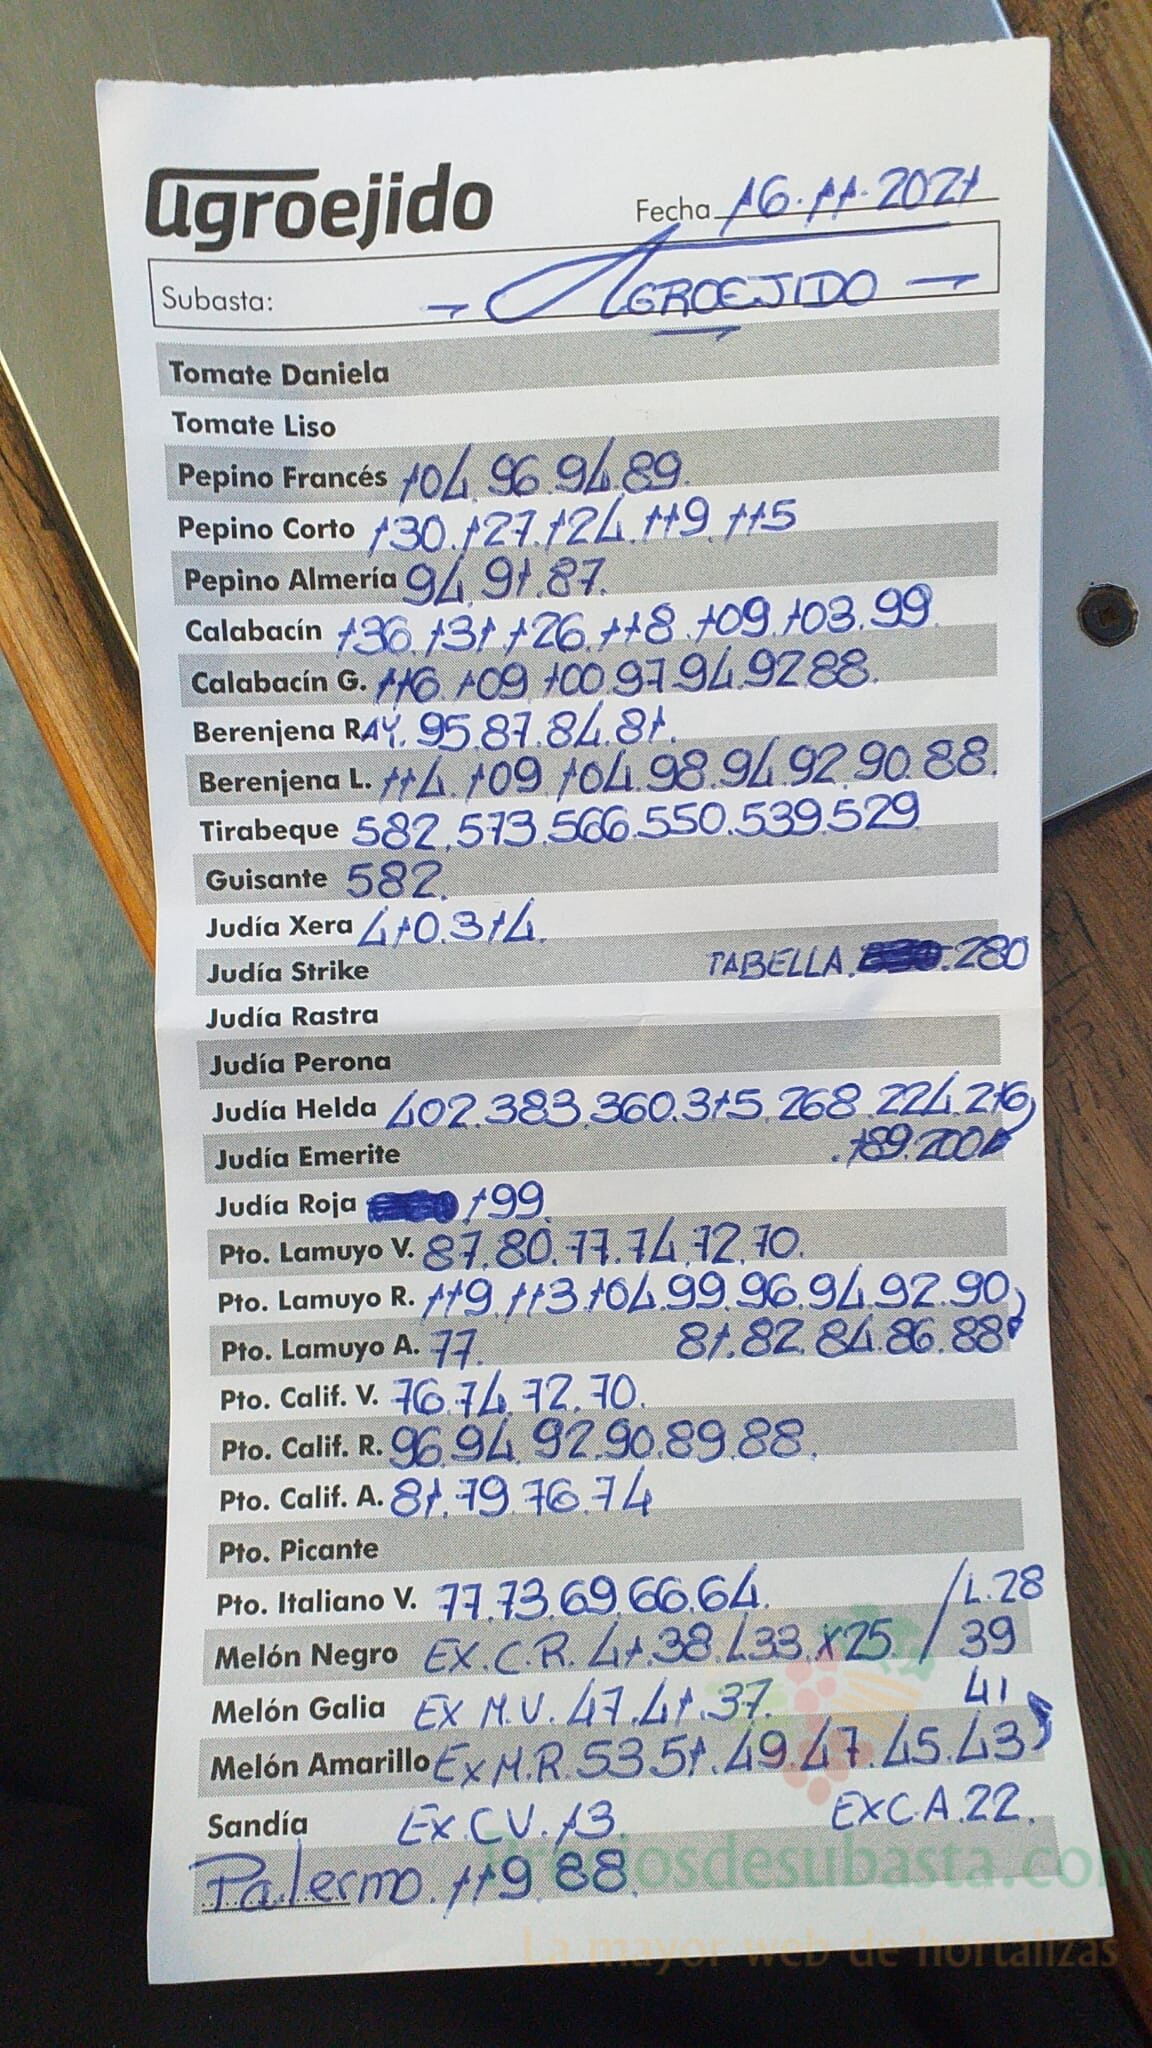 agroejido
Fecha 16.11.2021
Subasta: - AGROEJIDO -
Tomate Daniela
Tomate Liso
Pepino Francés 104.96.94.89.
Pepino Corto 130.127.124.119.115
Pepino Almería 94.91.87.
Calabacín 136.131.126.118.109.103.99.
Calabacín G. 116.109.100.97.94.92.88.
Berenjena RAY. 95.87.84.81.
Berenjena L. 114.109.104.98.94.92.90.88.
Tirabeque 582.573.566.550.539.529
Guisante 582.
Judía Xera 410.314.
Judía Strike TABELLA. .280
Judía Rastra
Judía Perona
Judía Helda 402.383.360.315.268.224.216
Judía Emerite .189.200
Judía Roja 199
Pto. Lamuyo V. 87.80.77.74.72.70.
Pto. Lamuyo R. 119.113.104.99.96.94.92.90
Pto. Lamuyo A. 77. 81.82.84.86.88
Pto. Calif. V. 76.74.72.70.
Pto. Calif. R. 96.94.92.90.89.88.
Pto. Calif. A. 81.79.76.74
Pto. Picante
Pto. Italiano V. 77.73.69.66.64. /L.28
Melón Negro EX.C.R. 41.38.L33.X25 / 39
Melón Galia EX M.V. 47.41.37. 41
Melón Amarillo EX M.R. 53.51.49.47.45.43
Sandía EX.C.V. 13 EXC.A.22.
Palermo. 119.88.
Preciosdesubasta.com
La mayor web de hortalizas